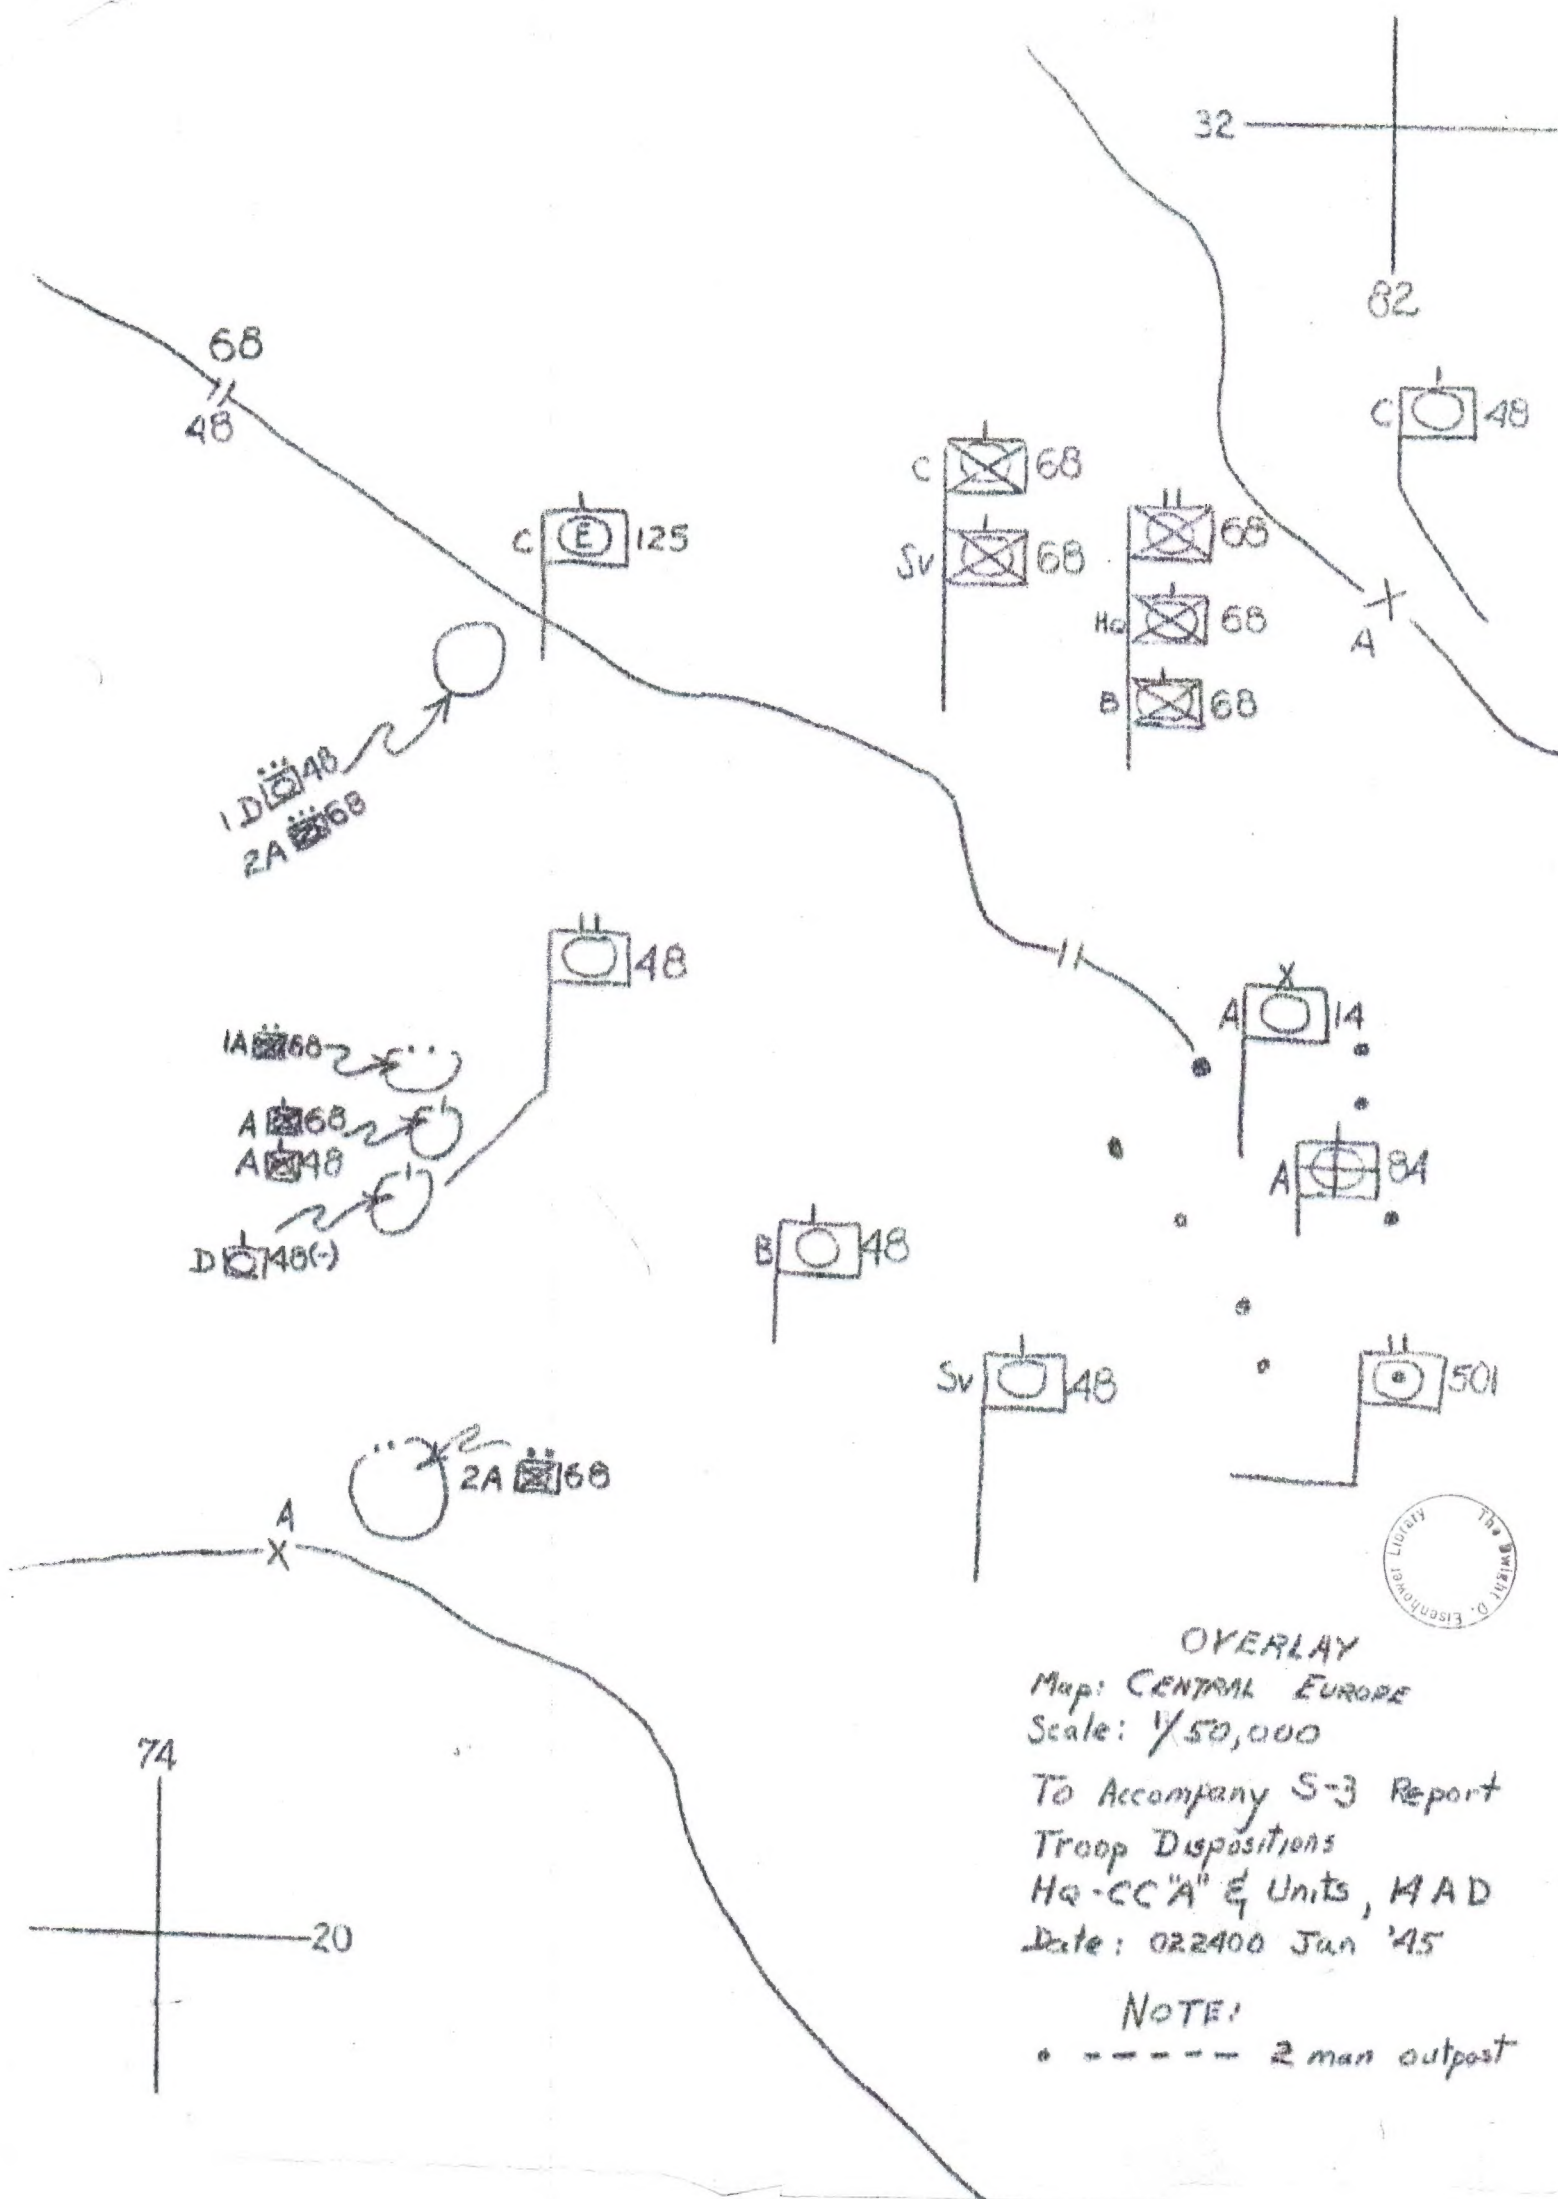 32
82
68
48
C 48
C 68
Sv 68
68
Hq 68
B 68
A
C E 125
1 D 48
2A 68
48
1A 68
A 68
A 48
D 48(-)
A 14
A 84
B 48
Sv 48
501
2A 68
A
The Dwight D. Eisenhower Library
OVERLAY
Map: CENTRAL EUROPE
Scale: 1/50,000
To Accompany S-3 Report
Troop Dispositions
Hq-CC "A" & Units, 14 A D
Date: 022400 Jan '45
NOTE:
• - - - - - 2 man outpost
74
20